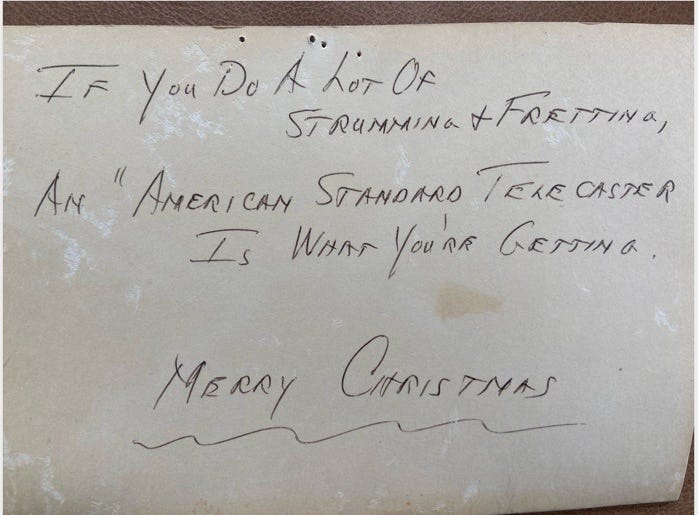 If You Do A Lot Of
Strumming & Fretting,
An "American Standard Telecaster
Is What You're Getting.
Merry Christmas